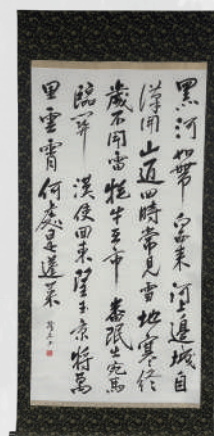 黑河如帶向西来河上邊城自
漢開山近四時常見雪地寒終
歲不聞雷牦牛互市番氓出宛馬
臨關漢使回東望玉京将萬
里雲霄何處是蓬萊